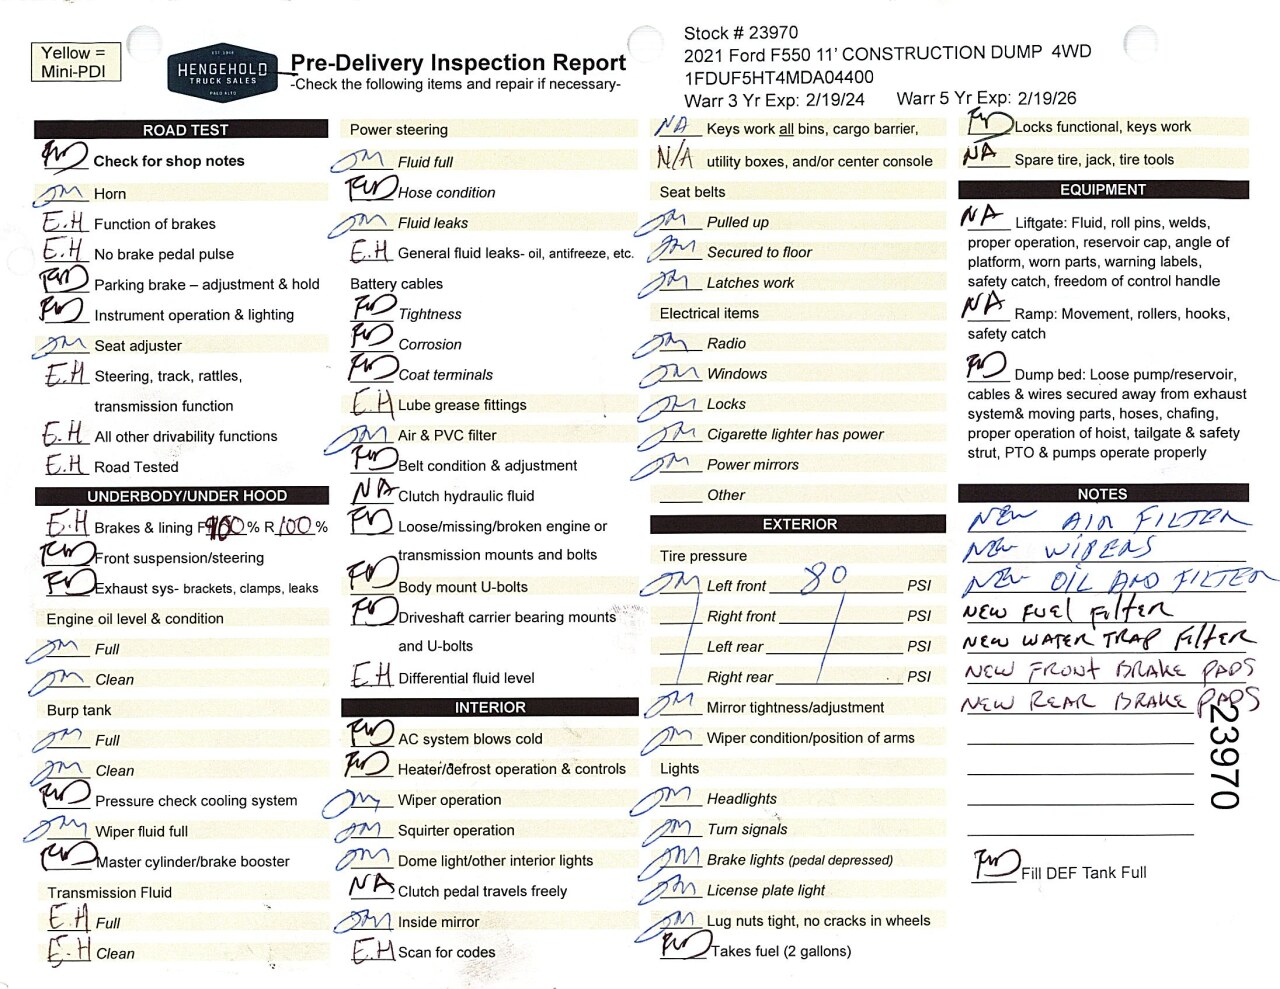 Yellow =
Mini-PDI
EST. 1968
HENGEHOLD
TRUCK SALES
PALO ALTO
Pre-Delivery Inspection Report
-Check the following items and repair if necessary-
Stock # 23970
2021 Ford F550 11' CONSTRUCTION DUMP 4WD
1FDUF5HT4MDA04400
Warr 3 Yr Exp: 2/19/24 Warr 5 Yr Exp: 2/19/26
ROAD TEST
Check for shop notes
JM Horn
E.H Function of brakes
E.H No brake pedal pulse
Parking brake – adjustment & hold
Instrument operation & lighting
JM Seat adjuster
E.H Steering, track, rattles,
transmission function
E.H All other drivability functions
E.H Road Tested
UNDERBODY/UNDER HOOD
E.H Brakes & lining F 100 % R 100 %
Front suspension/steering
Exhaust sys- brackets, clamps, leaks
Engine oil level & condition
JM Full
JM Clean
Burp tank
JM Full
JM Clean
Pressure check cooling system
JM Wiper fluid full
Master cylinder/brake booster
Transmission Fluid
E.H Full
E.H Clean
Power steering
JM Fluid full
Hose condition
JM Fluid leaks
E.H General fluid leaks- oil, antifreeze, etc.
Battery cables
Tightness
Corrosion
Coat terminals
E.H Lube grease fittings
JM Air & PVC filter
Belt condition & adjustment
NA Clutch hydraulic fluid
Loose/missing/broken engine or
transmission mounts and bolts
Body mount U-bolts
Driveshaft carrier bearing mounts
and U-bolts
E.H Differential fluid level
INTERIOR
AC system blows cold
Heater/defrost operation & controls
JM Wiper operation
JM Squirter operation
JM Dome light/other interior lights
NA Clutch pedal travels freely
JM Inside mirror
E.H Scan for codes
NA Keys work all bins, cargo barrier,
N/A utility boxes, and/or center console
Seat belts
JM Pulled up
JM Secured to floor
JM Latches work
Electrical items
JM Radio
JM Windows
JM Locks
JM Cigarette lighter has power
JM Power mirrors
Other
EXTERIOR
Tire pressure
JM Left front 80 PSI
Right front PSI
Left rear PSI
Right rear PSI
JM Mirror tightness/adjustment
JM Wiper condition/position of arms
Lights
JM Headlights
JM Turn signals
JM Brake lights (pedal depressed)
JM License plate light
JM Lug nuts tight, no cracks in wheels
Takes fuel (2 gallons)
Locks functional, keys work
NA Spare tire, jack, tire tools
EQUIPMENT
NA Liftgate: Fluid, roll pins, welds,
proper operation, reservoir cap, angle of
platform, worn parts, warning labels,
safety catch, freedom of control handle
NA Ramp: Movement, rollers, hooks,
safety catch
Dump bed: Loose pump/reservoir,
cables & wires secured away from exhaust
system& moving parts, hoses, chafing,
proper operation of hoist, tailgate & safety
strut, PTO & pumps operate properly
NOTES
NEW AIR FILTER
NEW WIPERS
NEW OIL AND FILTER
NEW FUEL FILTER
NEW WATER TRAP FILTER
NEW FRONT BRAKE PADS
NEW REAR BRAKE PADS
23970
Fill DEF Tank Full